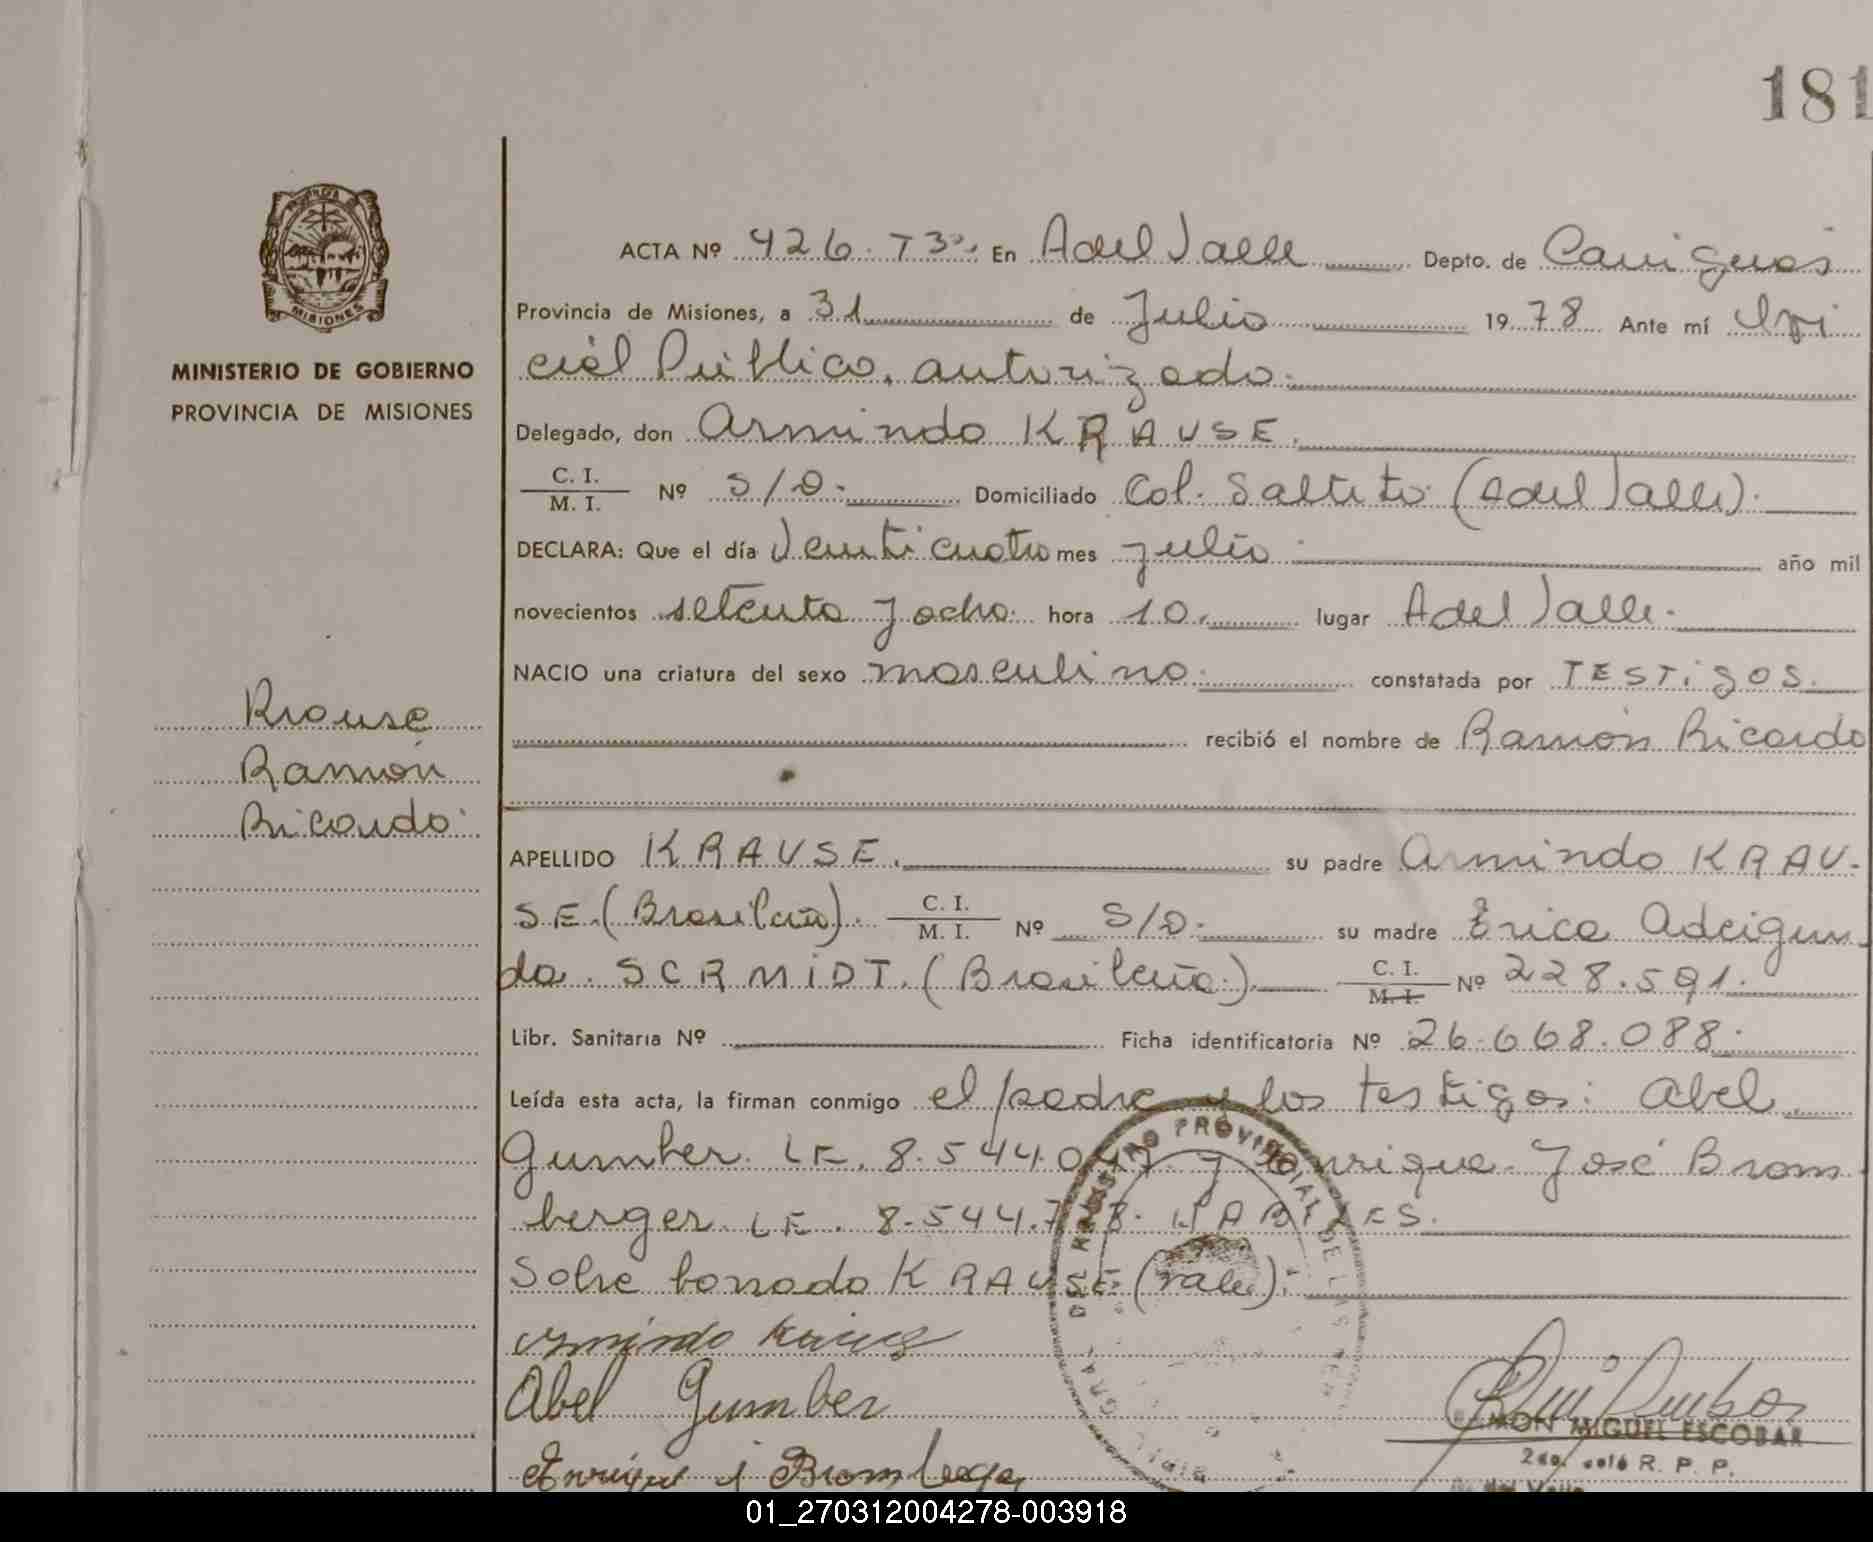 181
PROVINCIA DE
MISIONES
MINISTERIO DE GOBIERNO
PROVINCIA DE MISIONES
Krause
Ramón
Ricardo.
ACTA Nº 426. Tº3. En A del Valle Depto. de Cainguas
Provincia de Misiones, a 31 de Julio 1978 Ante mí Ofi
cial Público, autorizado.
Delegado, don Armindo KRAUSE.
C. I.
M. I. Nº S/D. Domiciliado Col. Saltito (A del Valle).
DECLARA: Que el día Veinticuatro mes julio año mil
novecientos setenta y ocho. hora 10. lugar A del Valle.
NACIO una criatura del sexo masculino. constatada por TESTigos.
recibió el nombre de Ramón Ricardo
APELLIDO KRAUSE. su padre Armindo KRAU-
SE. (Brasileño). C. I.
M. I. Nº S/D. su madre Erica
da. SCRMIDT. (Brasileña.) C. I.
M. I. Nº 228.591.
Libr. Sanitaria Nº Ficha identificatoria Nº 26.668.088.
Leída esta acta, la firman conmigo el padre y los testigos: Abel
Gumber. LE. 8.544.0 y Enrique José Brom
berger. LE. 8.544.7 HABILES.
Sobre borrado KRAUSE (vale).
Armindo
Abel Gumber
Enrique J Bromberger
REGISTRO PROVINCIAL DE LAS
RAMON MIGUEL ESCOBAR
R. P. P.
del Valle
01_270312004278-003918